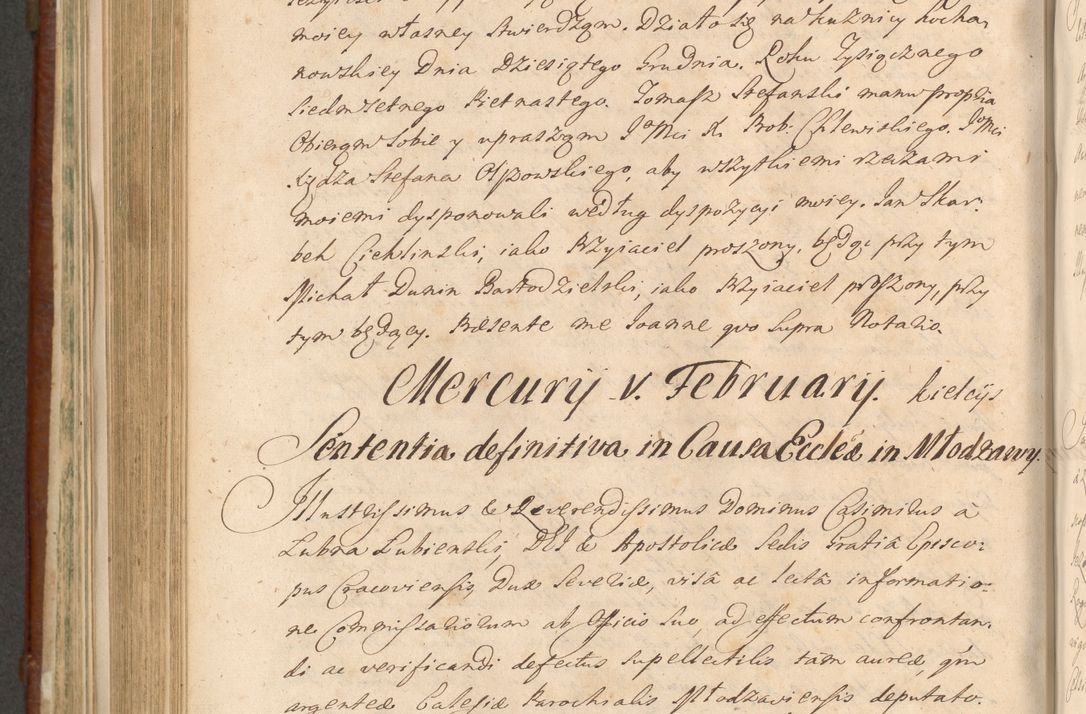 moiey własney stwierdzam. Działo się na kuznicy kocha,
nowskiey Dnia Dziesiątego Grudnia. Roku Tysiącznego
siedmsetnego Pietnastego. Tomasz Stefanski manu propria
Obieram sobie y upraszam JoMci X. Prob: Chlewiskiego. JoMci
Xiędza Stefana Olszowskiego, aby wszytkiemi rzeczami
moiemi dysponowali według dyspozycyi moiey. Jan Skar:
bek Cieklinski, iako Przyiaciel proszony, będąc przy tym
Michał Dunin Bartodzielski, iako Przyiaciel proszony, przy
tym będący. Præsente me Joanne quo supra Notario.
Mercurij v. Februarij. kielcijs
Sententia definitiva in Causa Ecclæ in Młodzawy.
Illustrissimus & Reverendissimus Dominus Casimirus à
Lubna Lubienski, DEI & Apostolicæ Sedis Gratiâ Episco:
pus Cracoviensis, Dux Severiæ, visâ ac lectâ informatio:
ne Commissariorum ab Officio suo, ad effectum confrontan,
di ac verificandi defectus supellectilis tàm aureæ, qm
argenteæ Ecclesiæ Parochialis Młodzaviensis deputato.